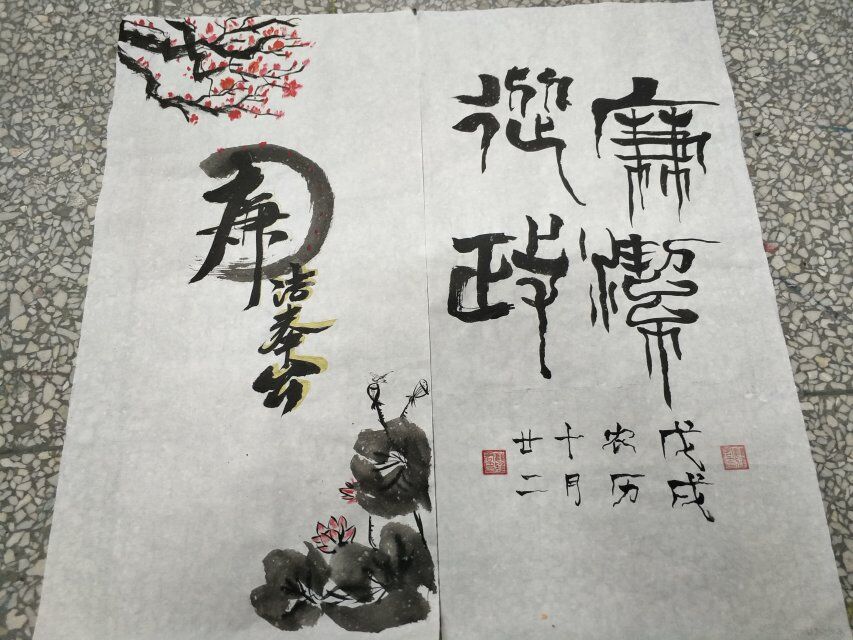 廉潔
從政
戊戌
农历
十月
廿二
廉
洁奉公